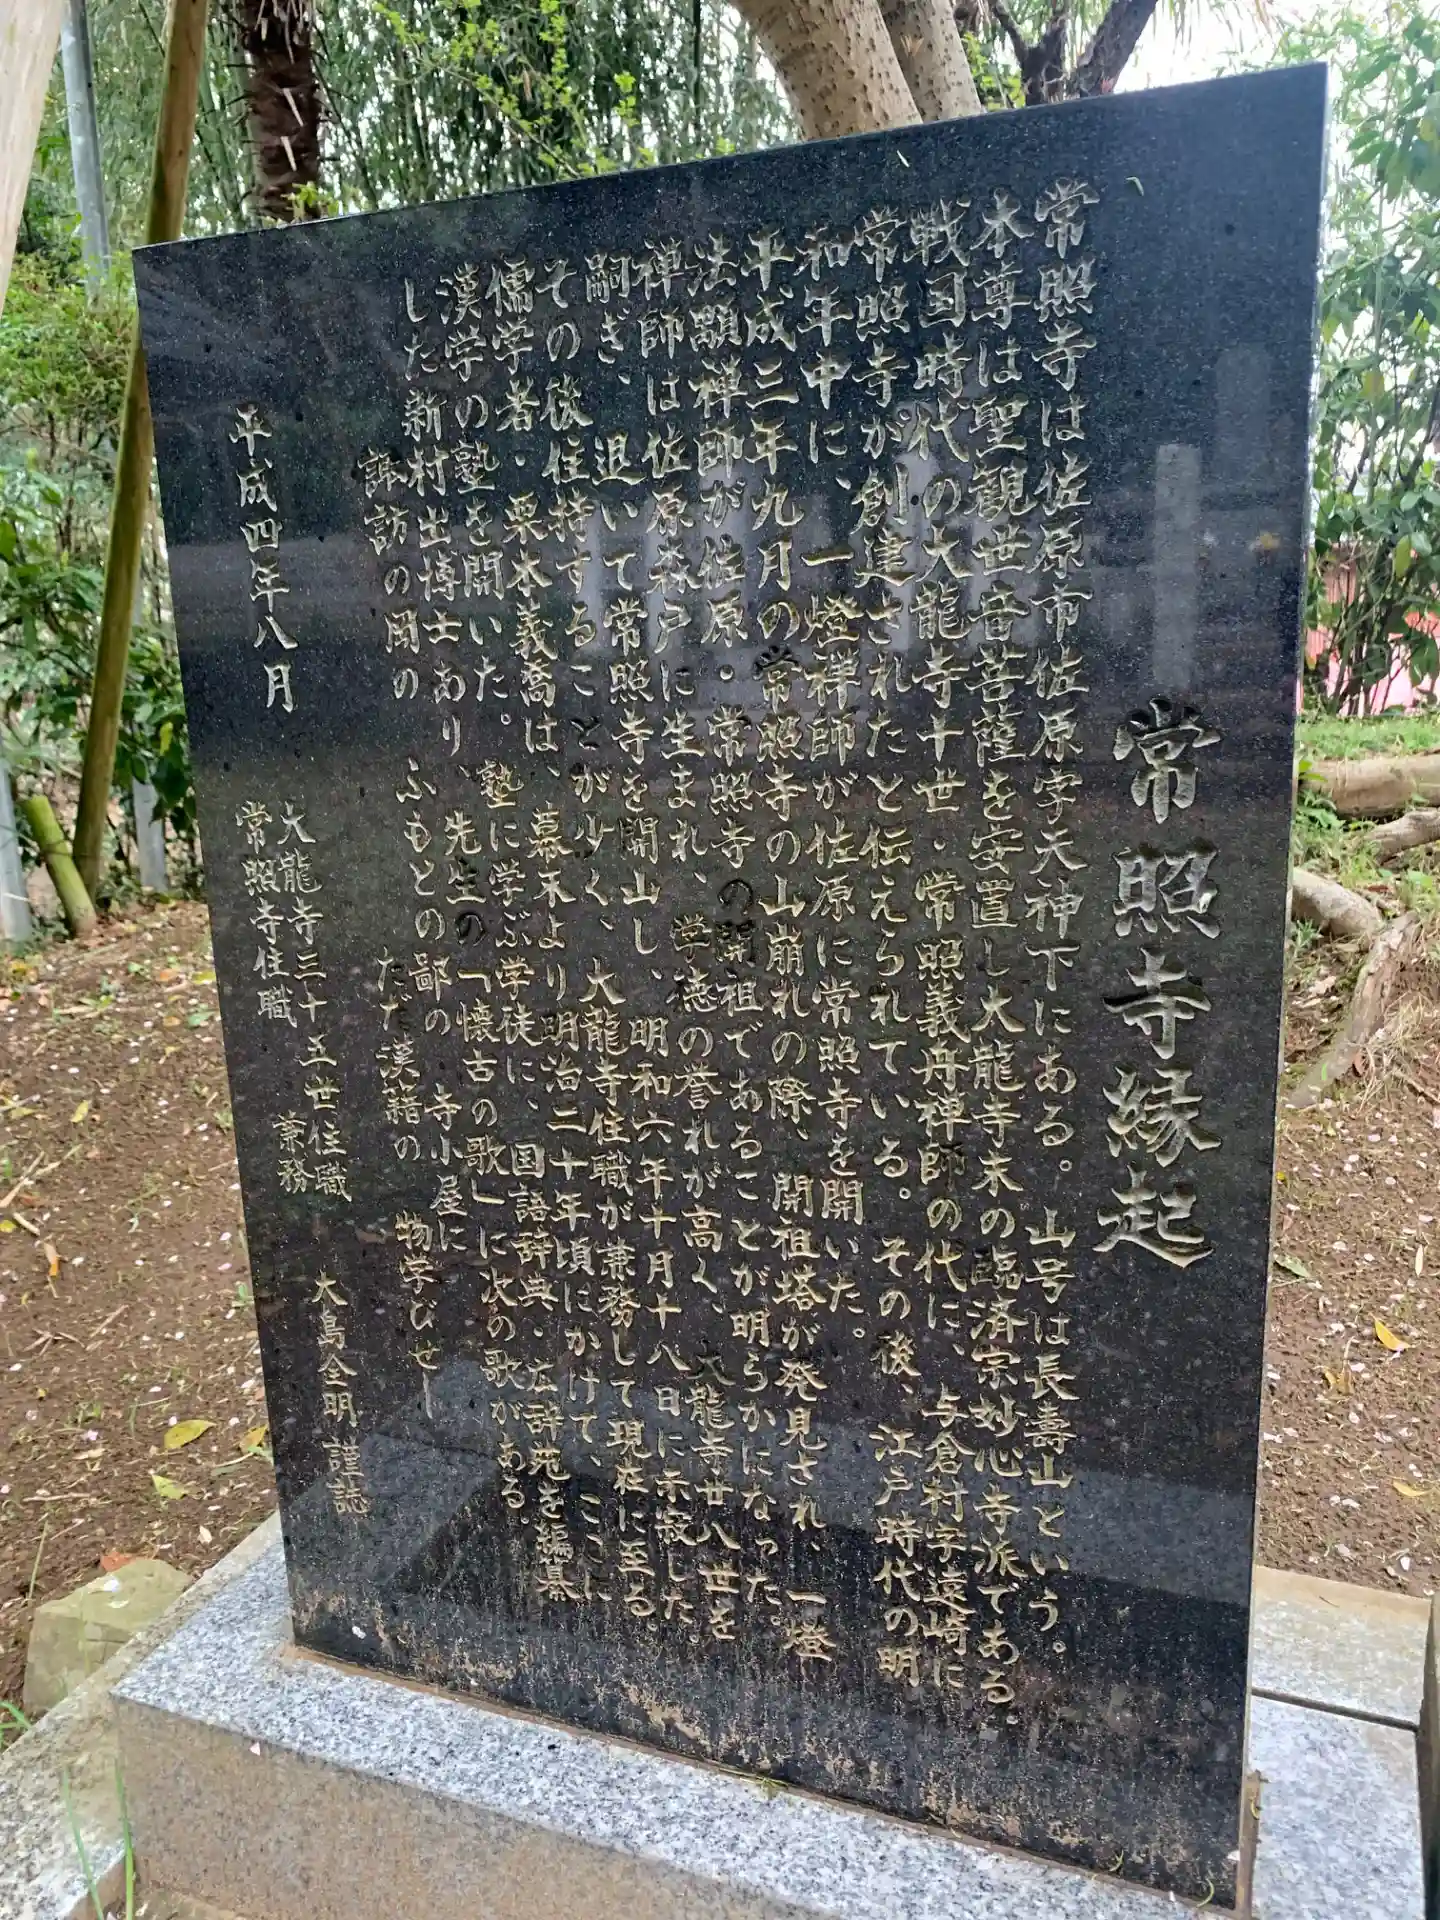 常照寺縁起
常照寺は佐原市佐原字天神下にある。山号は長壽山という。
本尊は聖観世音菩薩を安置し大龍寺末の臨済宗妙心寺派である。
戦国時代の大龍寺十世・常照義丹禅師の代に、与倉村字遠崎に
常照寺が創建されたと伝えられている。その後、江戸時代の明
和年中に、一燈禅師が佐原に常照寺を開いた。
平成三年九月の常照寺の山崩れの際、開祖塔が発見され、一燈
法顕禅師が佐原・常照寺の開祖であることが明らかになった。
禅師は佐原森戸に生まれ、学徳の誉れが高く、大龍寺廿八世を
嗣ぎ、退いて常照寺を開山し、明和六年十月十八日に示寂した。
その後住持することが少く、大龍寺住職が兼務して現在に至る。
儒学者・栗本義喬は、幕末より明治二十年頃にかけて、ここに
漢学の塾を開いた。塾に学ぶ学徒に、国語辞典・広辞苑を編纂
した新村出博士あり、先生の「懐古の歌」に次の歌がある。
諏訪の岡の ふもとの鄙の 寺小屋に
ただ漢籍の 物学びせし
平成四年八月
大龍寺三十五世住職
常照寺住職 兼務 大島全明 謹誌